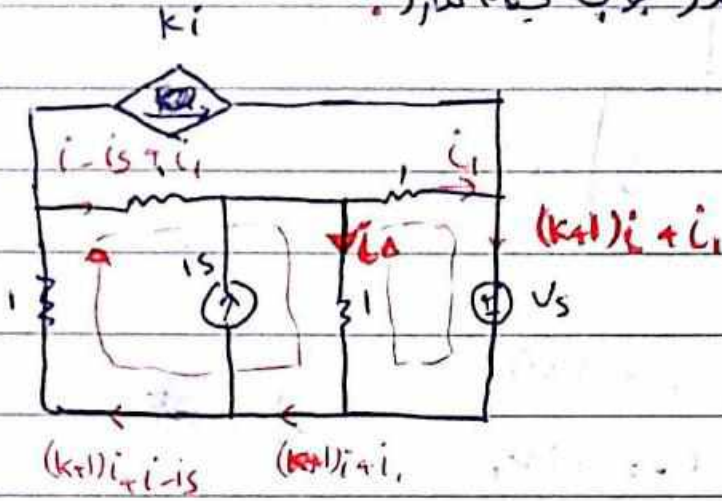 ki
i-is+i₁
i₁
1
(k+1)i+i₁
i
is
1
1
Vs
(k+1)i+i-is
(k+1)i+i₁